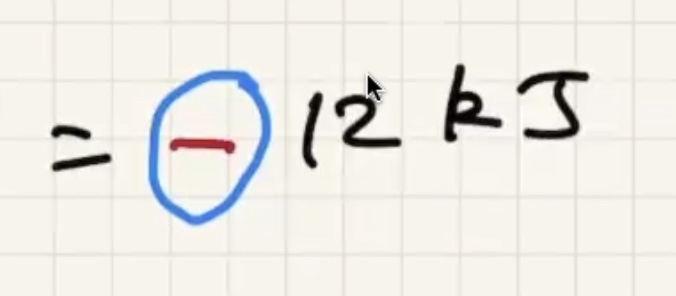 = - 12 kJ